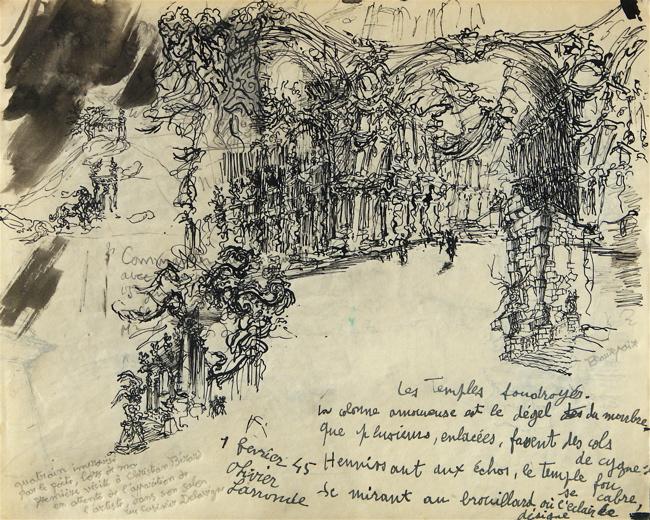 Les Temples foudroyés.
La colonne amoureuse est le dégel des du marbre,
que plusieurs, enlacées, fassent des cols de cygne :
Hennissant aux échos, le temple fou se cabre,
Se mirant au brouillard où l'éclair le désigne
1 février 45
Olivier
Larronde
quatrain
par le poète, lors de ma
première visite à Christian Bérard
en attente de l'apparition de
l'artiste, dans son salon
du Casimir Delavigne
Comm
avec